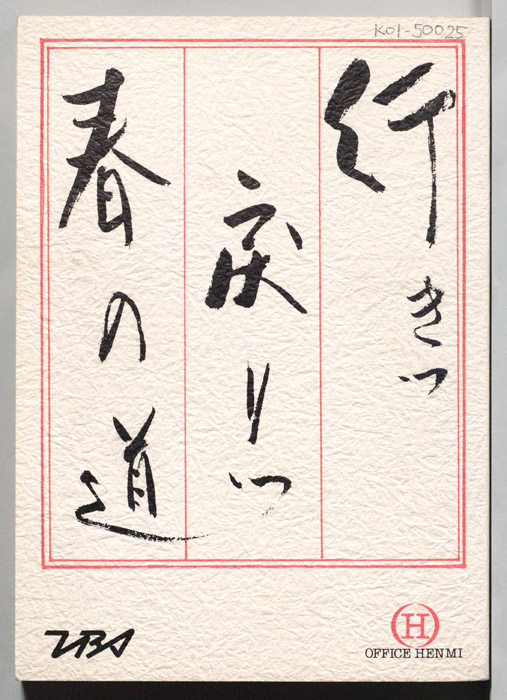 KOI-50025
行きつ
戻りつ
春の道
TBS
H
OFFICE HENMI